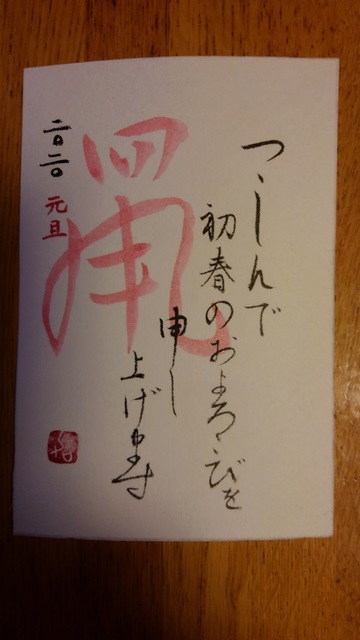 つゝしんで
初春のおよろこびを
申し
上げます
二〇二〇 元旦